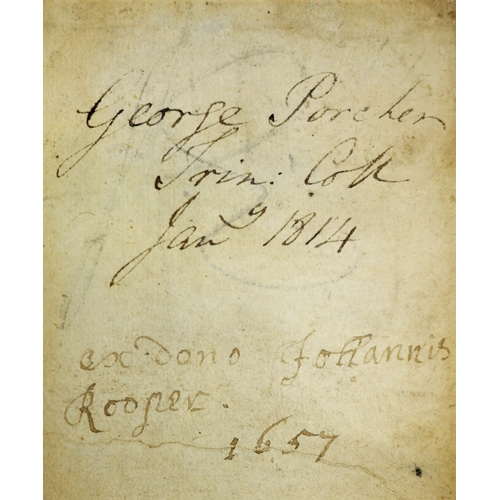 George Porcher
Trin: Coll
Jany 1814
ex dono Johannis
Rooper.
1657